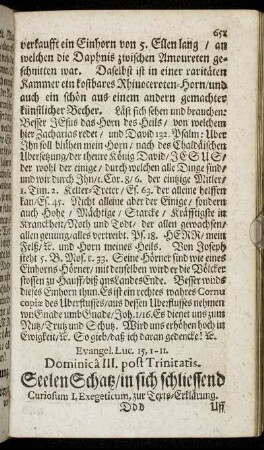 651
verkaufft ein Einhorn von 5. Ellen lang / an
welchen die Daphnis zwischen Amoureten ge-
schnitten war. Daselbst ist in einer raritäten
Kammer ein kostbares Rhinoceroten-Horn/und
auch ein schön aus einem andern gemachter
künstlicher Becher. Läst sich sehen und brauchen:
Besser JEsus das Horn des Heils/ von welchem
hier Zacharias redet/ und David 132. Psalm: Uber
Ihn soll blühen mein Horn/ nach des Chaldäischen
Ubersetzung/der theure König David/JESUS/
der wohl der einige/ durch welchen alle Dinge sind/
und wir durch Ihn/1. Cor. 8/6. der einzige Mitler/
1. Tim. 2. Kelter-Treter/Es. 63. der alleine helffen
kan/Es. 45. Nicht alleine aber der Einige/ sondern
auch Hohe/ Mächtige/ Starcke/ Kräfftigste in
Kranckheit/Noth und Todt/ der allen gewachsen/
allen genung/alles vertreibt. Ps. 18. HERR/mein
Felß/ &c. und Horn meines Heils. Von Joseph
steht 5. B. Mos. c. 33. Seine Hörner sind wie eines
Einhorns-Hörner/mit denselben wird er die Völcker
stossen zu Hauff/biß ans Landes Ende. Besser wirds
dieses Einhorn thun. Es ist ein rechtes wahres Cornu
copiæ des Uberflusses/aus dessen Uberflusses nehmen
wir Gnade umb Gnade/Joh. 1/16. Es dienet uns zum
Nutz/Trutz und Schutz. Wird uns erhöhen hoch in
Ewigkeit/&c. So gieb/daß ich daran gedencke! &c.
Evangel. Luc. 15, 1-11.
Dominicâ III. post Trinitatis.
Seelen Schatz/in sich schliessend
Curiosum I, Exegeticum, zur Texts-Erklärung.
Ddd Uff